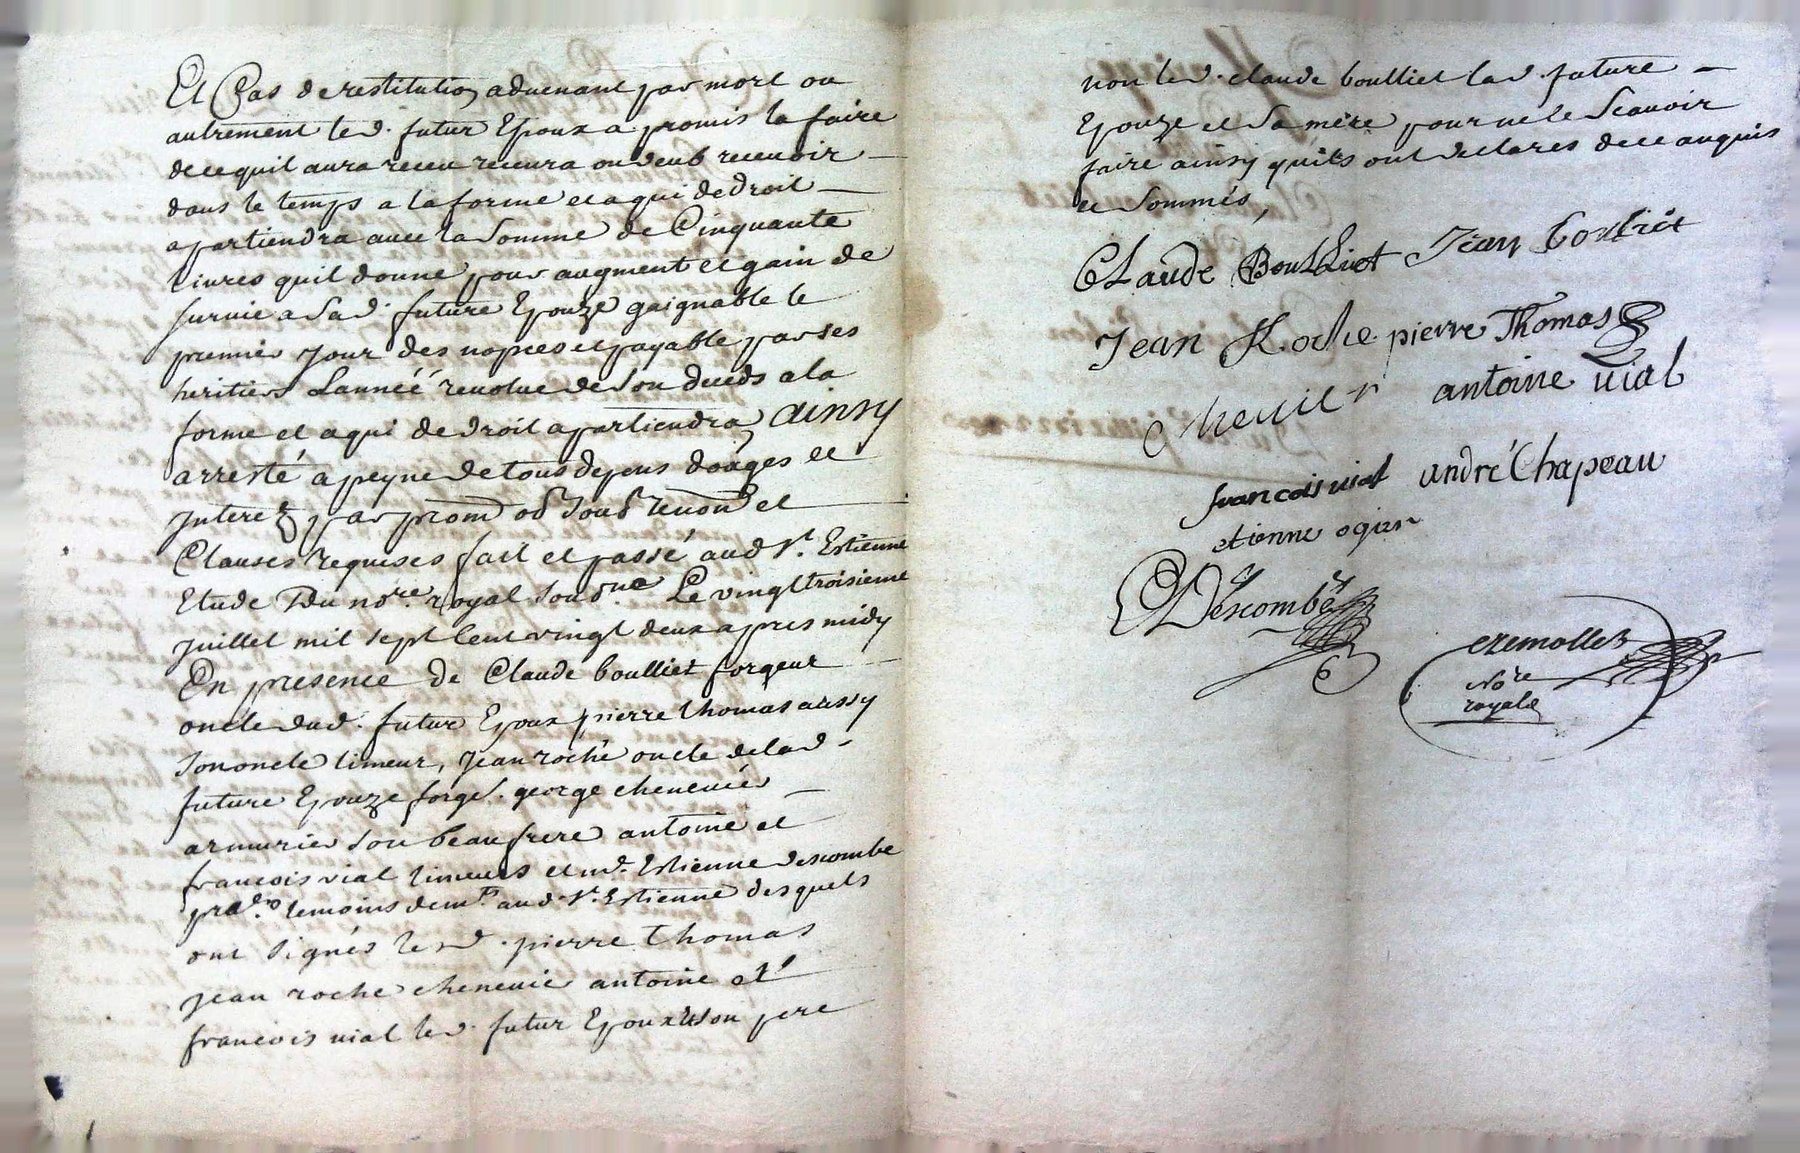 Et Cas de restitution aduenant par mort ou
autrement led. futur Epoux a promis la faire
de ce quil aura receu receura ou deub receuoir
dans le temps a la forme et a qui de droit
apartiendra auec la Somme de Cinquante
liures quil donne pour augment et gain de
suruie a Sad. future Epouze gaignable le
premier Jour des nopces et payable par ses
heritiers Lannéé reuolue de Son deceds a la
forme et a qui de droit apartiendra, ainsy
arresté a peyne de tous depens doages et
Interez, par prom ob Soub renon et
Clauses requises fait et passé aud St. Estienne
Etude Du nore. royal Sousne Le vingt troisieme
Juillet mil sept Cent vingt deux apres midy
En presence de Claude boulliet forgeur
oncle dud. futur Epoux pierre thomas aussy
Son oncle limeur, Jean roche oncle delad
future Epouze forgr. george cheneuier
armurier Son beaufrere antoine et
francois vial limeurs et md. Estienne descombe
temoins aud. St. Estienne desquels
ont signés led. pierre thomas
Jean roche cheneuier antoine et
francois vial led. futur Epoux et son pere
non led. claude boulliet lad. future
Epouze et Sa mere pour ne le Scauoir
faire ainsy quils ont declares de ce anquis
et Sommés,
CLaude BoulLiet Jean boulliet
Jean Roche pierre Thomas
Cheneuier antoine vial
francois vial andré Chapeau
etienne ogier
Descombe
cremollet
Nore
royale